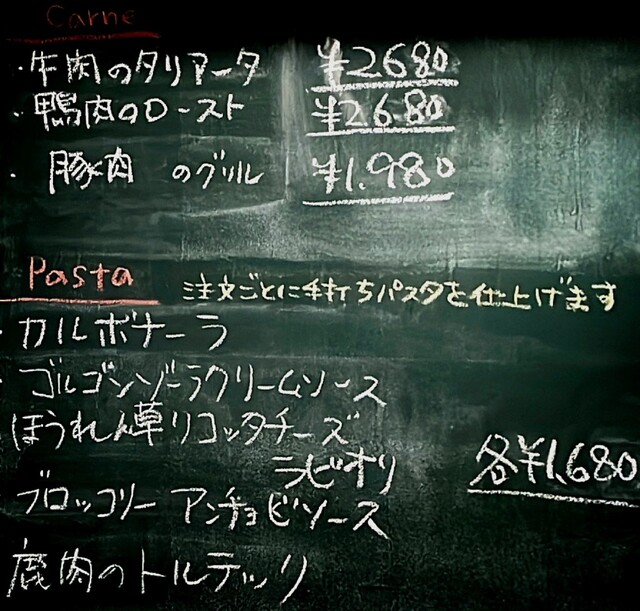 Carne
・牛肉のタリアータ ¥2680
・鴨肉のロースト ¥2680
・豚肉のグリル ¥1.980
Pasta 注文ごとに手打ちパスタを仕上げます
・カルボナーラ
・ゴルゴンゾーラクリームソース
ほうれん草リコッタチーズ
ラビオリ 各¥1.680
ブロッコリー アンチョビソース
鹿肉のトルテッリ